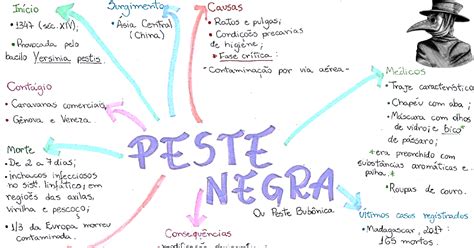 Início
• 1347 (séc. XIV);
• Provocada pelo
bacilo Yersinia pestis.
Surgimento
• Ásia Central
(China)
Causas
• Ratos e pulgas;
• Condições precárias
de higiene;
• Fase crítica:
- Contaminação por via aérea-
Contágio
• Caravanas comerciais,
• Gênova e Veneza.
Médicos
• Traje característico
• Chapéu com aba;
• Máscara com olhos
de vidro; e bico"
de pássaro;
• era preenchido com
substâncias aromáticas e
palha.
• Roupas de couro.
Morte
• De 2 a 7 dias;
• inchaços infecciosos
no sist. linfático; em
regiões das axilas,
virilha e pescoço;
• 1/3 da Europa morreu
contaminada.
PESTE
NEGRA
Ou Peste Bubônica
Consequências
Últimos casos registrados
• Madagascar, 2017:
165 mortos